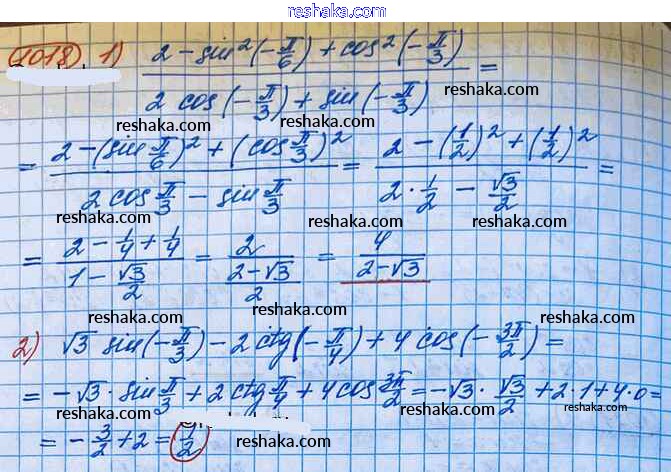 reshaka.com
1018. 1) (2 - sin²(-π/6) + cos²(-π/3)) / (2 cos(-π/3) + sin(-π/3)) =
reshaka.com reshaka.com
= (2 - (sin π/6)² + (cos π/3)²) / (2 cos π/3 - sin π/3) = (2 - (1/2)² + (1/2)²) / (2 · 1/2 - √3/2) =
reshaka.com reshaka.com
= (2 - 1/4 + 1/4) / (1 - √3/2) = 2 / ((2-√3)/2) = 4 / (2-√3)
reshaka.com reshaka.com
2) √3 sin(-π/3) - 2 ctg(-π/4) + 4 cos(-3π/2) =
reshaka.com reshaka.com
= -√3 · sin π/3 + 2 ctg π/4 + 4 cos 3π/2 = -√3 · √3/2 + 2·1 + 4·0 =
reshaka.com reshaka.com reshaka.com
= -3/2 + 2 = 1/2
reshaka.com